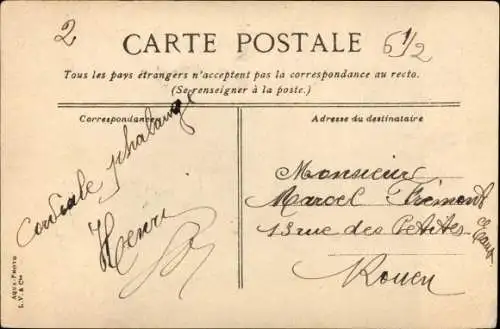 2
CARTE POSTALE
6 1/2
Tous les pays étrangers n'acceptent pas la correspondance au recto.
(Se renseigner à la poste.)
Correspondance
Cordiale phalange
Henri
Adresse du destinataire
Monsieur
Marcel Frémont
13 rue des Petites Eaux
Rouen
AQUA-PHOTO
L. V. & Cie